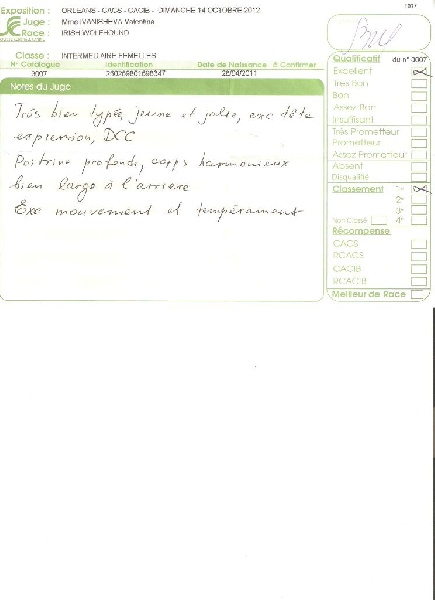 1007
Exposition : ORLEANS - CACS - CACIB - DIMANCHE 14 OCTOBRE 2012
Juge : Mme IVANISHEVA Valentina
Race : IRISH WOLFHOUND
Classe : INTERMEDIAIRE FEMELLES
N° Catalogue Identification Date de Naissance à Confirmer
3007 26/04/2011
Notes du Juge
Très bien typée, jeune et jolie, exc tête
expression, DCC
Poitrine profonde, corps harmonieux
bien large à l'arrière
Exc mouvement et tempérament
Qualificatif du n° 3007
Excellent
Très Bon
Bon
Assez Bon
Insuffisant
Très Prometteur
Prometteur
Assez Prometteur
Absent
Disqualifié
Classement 1er
2e
3e
Non Classé 4e
Récompense
CACS
RCACS
CACIB
RCACIB
Meilleur de Race